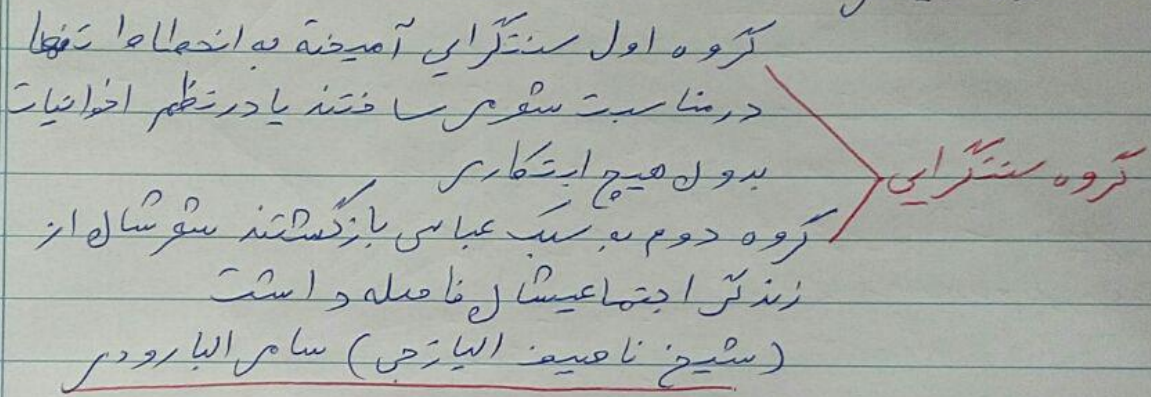 گروه سنتگرایی
گروه اول سنتگرایی آمیخته به انحطاط تنها
در مناسبت شعر می ساختند یا در تنظم اخوانیات
بدون هیچ ابتکاری
گروه دوم به سبک عباسی بازگشتند شعرشان از
زندگی اجتماعیشان فاصله داشت
(شیخ ناصیف الیازجی) سامی البارودی